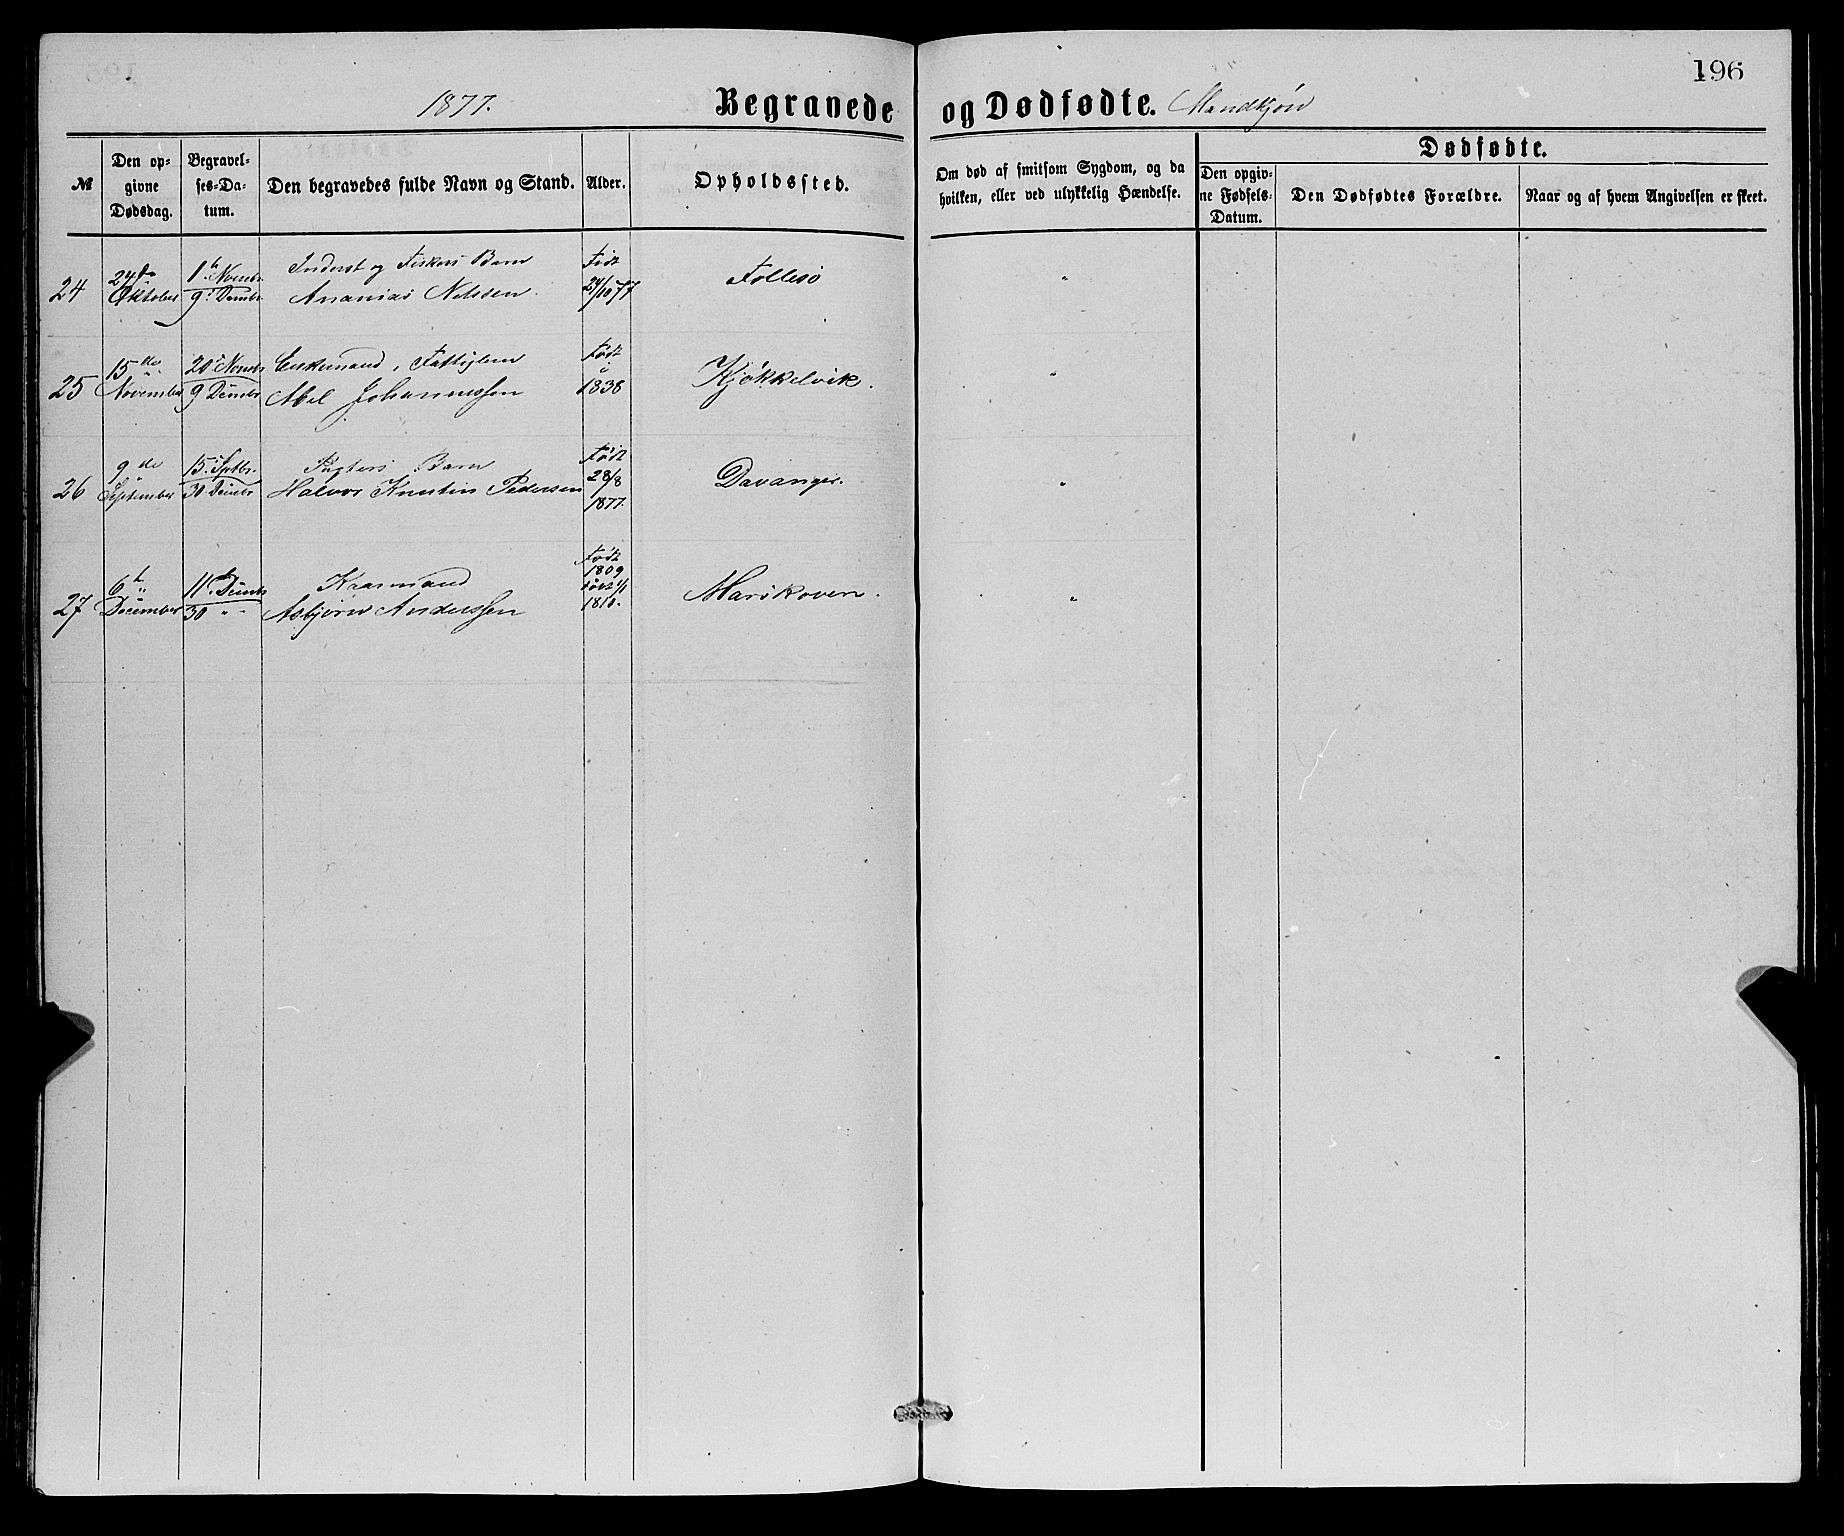 196
1877. Begravede og Dødfødte. Mandkjøn
№
Den opgivne Dødsdag.
Begravelses-Datum.
Den begravedes fulde Navn og Stand.
Alder.
Opholdssted.
Om død af smitsom Sygdom, og da hvilken, eller ved ulykkelig Hændelse.
Dødfødte.
Den opgivne Fødsels-Datum.
Den Dødfødtes Forældre.
Naar og af hvem Angivelsen er skeet.
24 24de Oktober 1. Novembr 9. Decmbr Inderst og Fiskers Barn Ananias Nilssen. Født 24/10 77 Follesø "
25 15de November 20. Novmbr 9 Decmbr Enkemand, Fattiglem Abel Johannessen Født i 1838 Kjøkkelvik. "
26 9de September 15. Septbr. 30 Decmbr Barn Halvor Knutin Pedersen Født 28/8 1877. Davanger. "
27 6 December 11. Decmbr 30 " Kaarmand Asbjørn Anderssen Født 1809 døbt 1/1 1810. Marikoven. "